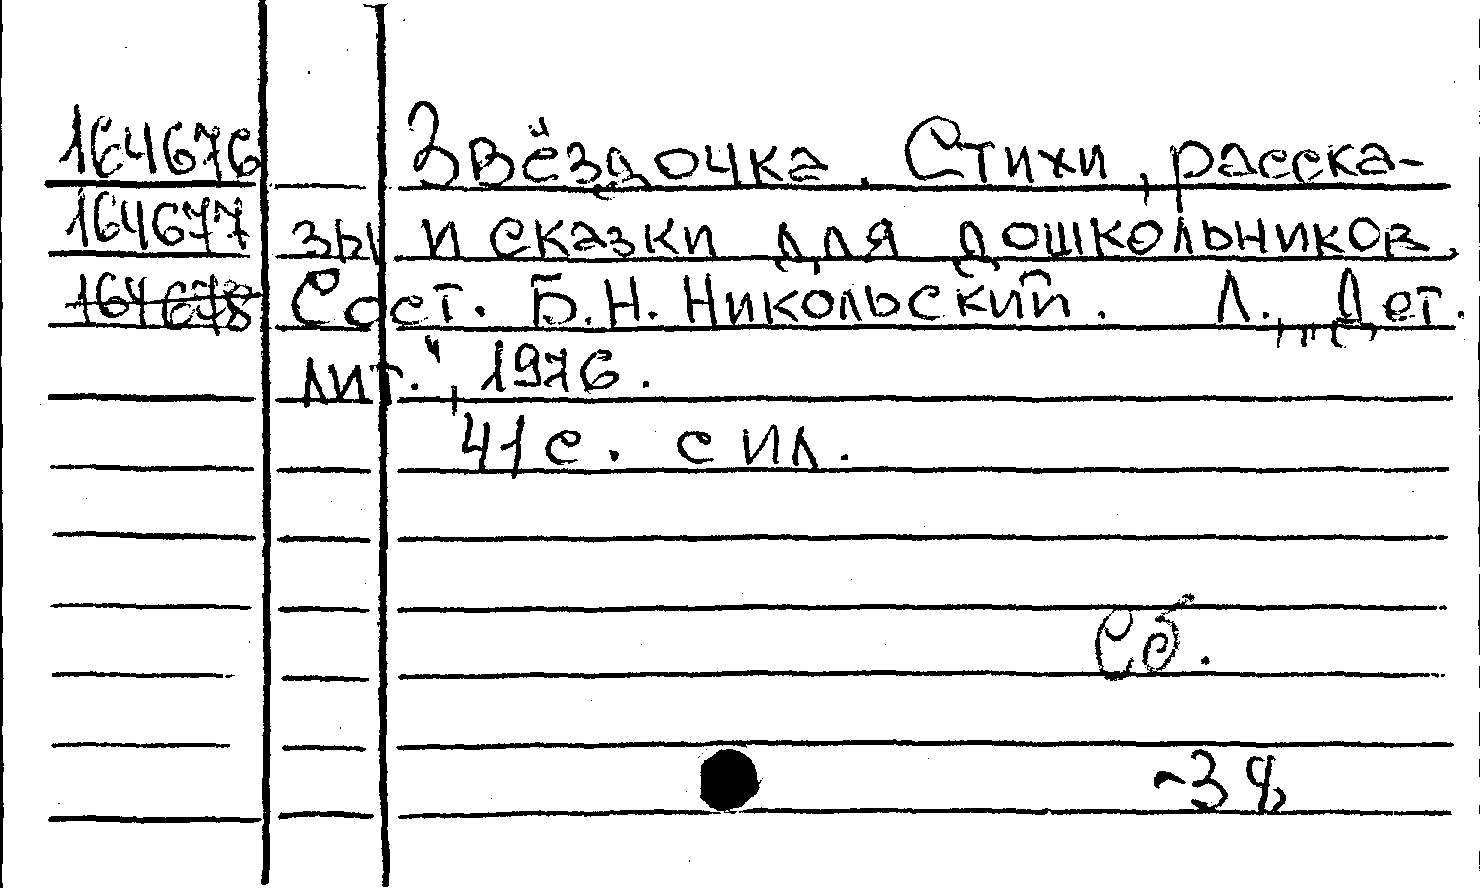 164676 Звёздочка. Стихи, расска-
164677 зы и сказки для дошкольников.
164678 Сост. Б.Н. Никольский. Л., „Дет.
лит.", 1976.
41 с. с ил.
Сб.